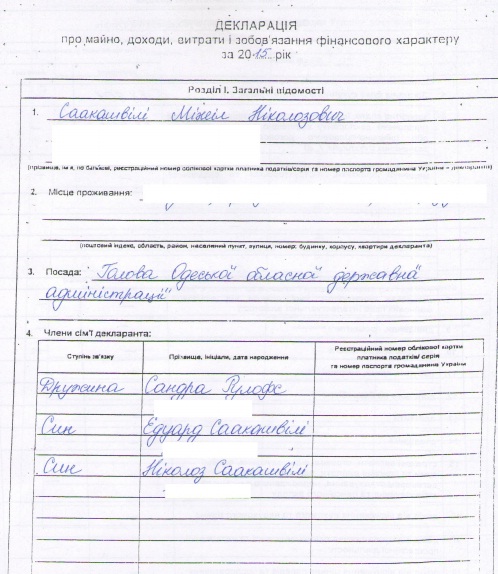 ДЕКЛАРАЦІЯ
про майно, доходи, витрати і зобов'язання фінансового характеру
за 2015 рік
Розділ I. Загальні відомості
1. Саакашвілі Міхеіл Ніколозович
(прізвище, ім'я, по батькові, реєстраційний номер облікової картки платника податків/серія та номер паспорта громадянина України – декларанта)
2. Місце проживання:
(поштовий індекс, область, район, населений пункт, вулиця, номер: будинку, корпусу, квартири декларанта)
3. Посада: Голова Одеської обласної державної
адміністрації
4. Члени сім'ї декларанта:
Ступінь зв'язку
Прізвище, ініціали, дата народження
Реєстраційний номер облікової картки
платника податків/ серія
та номер паспорта громадянина України
Дружина Сандра Рулофс
Син Едуард Саакашвілі
Син Ніколоз Саакашвілі